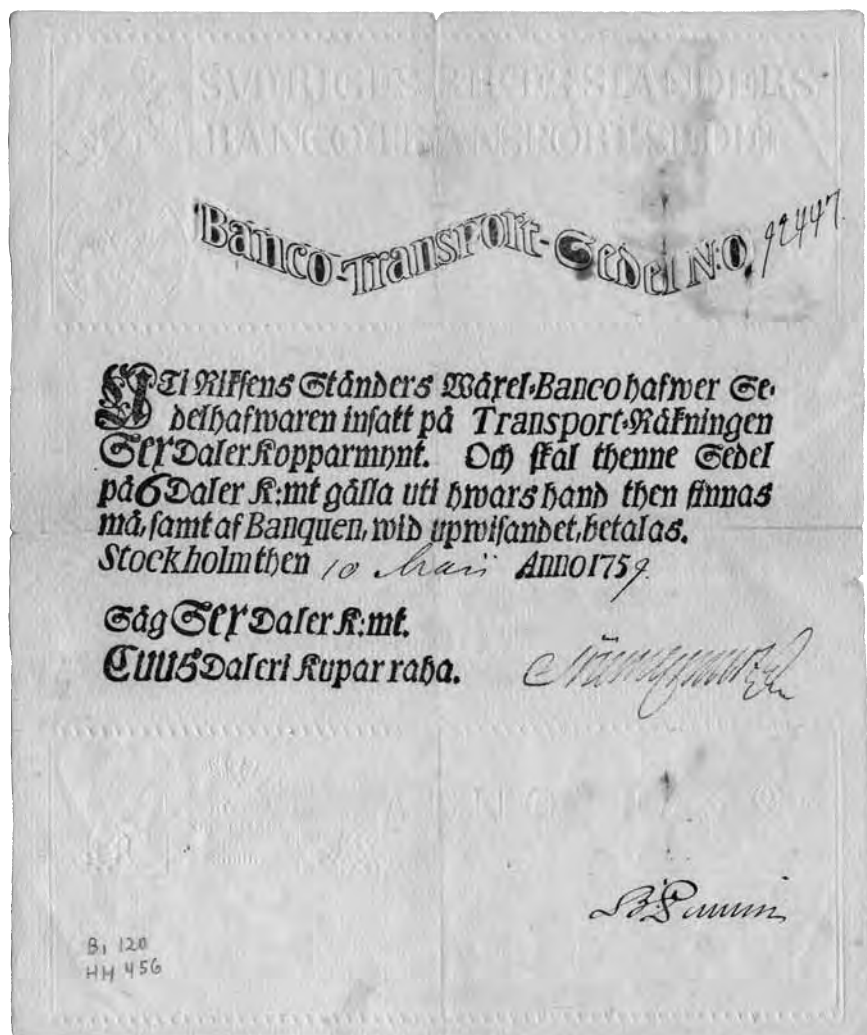 SVERIGES RIKES STÄNDERS
BANCO TRANSPORTSEDEL
Banco-Transport-Sedel N:O, 92447.
UTi Riksens Ständers Wäxel-Banco hafwer Se-
delhafwaren insatt på Transport-Räkningen
Sex Daler Kopparmynt. Och skal thenne Sedel
på 6 Daler K:mt gälla uti hwars hand then finnas
må, samt af Banquen, wid upwisandet, betalas.
Stockholm then 10 Maii Anno 1759.
Säg Sex Daler K:mt.
Cuus Daleri Kupar raha.
ANNO 17
B1 120
HH 456